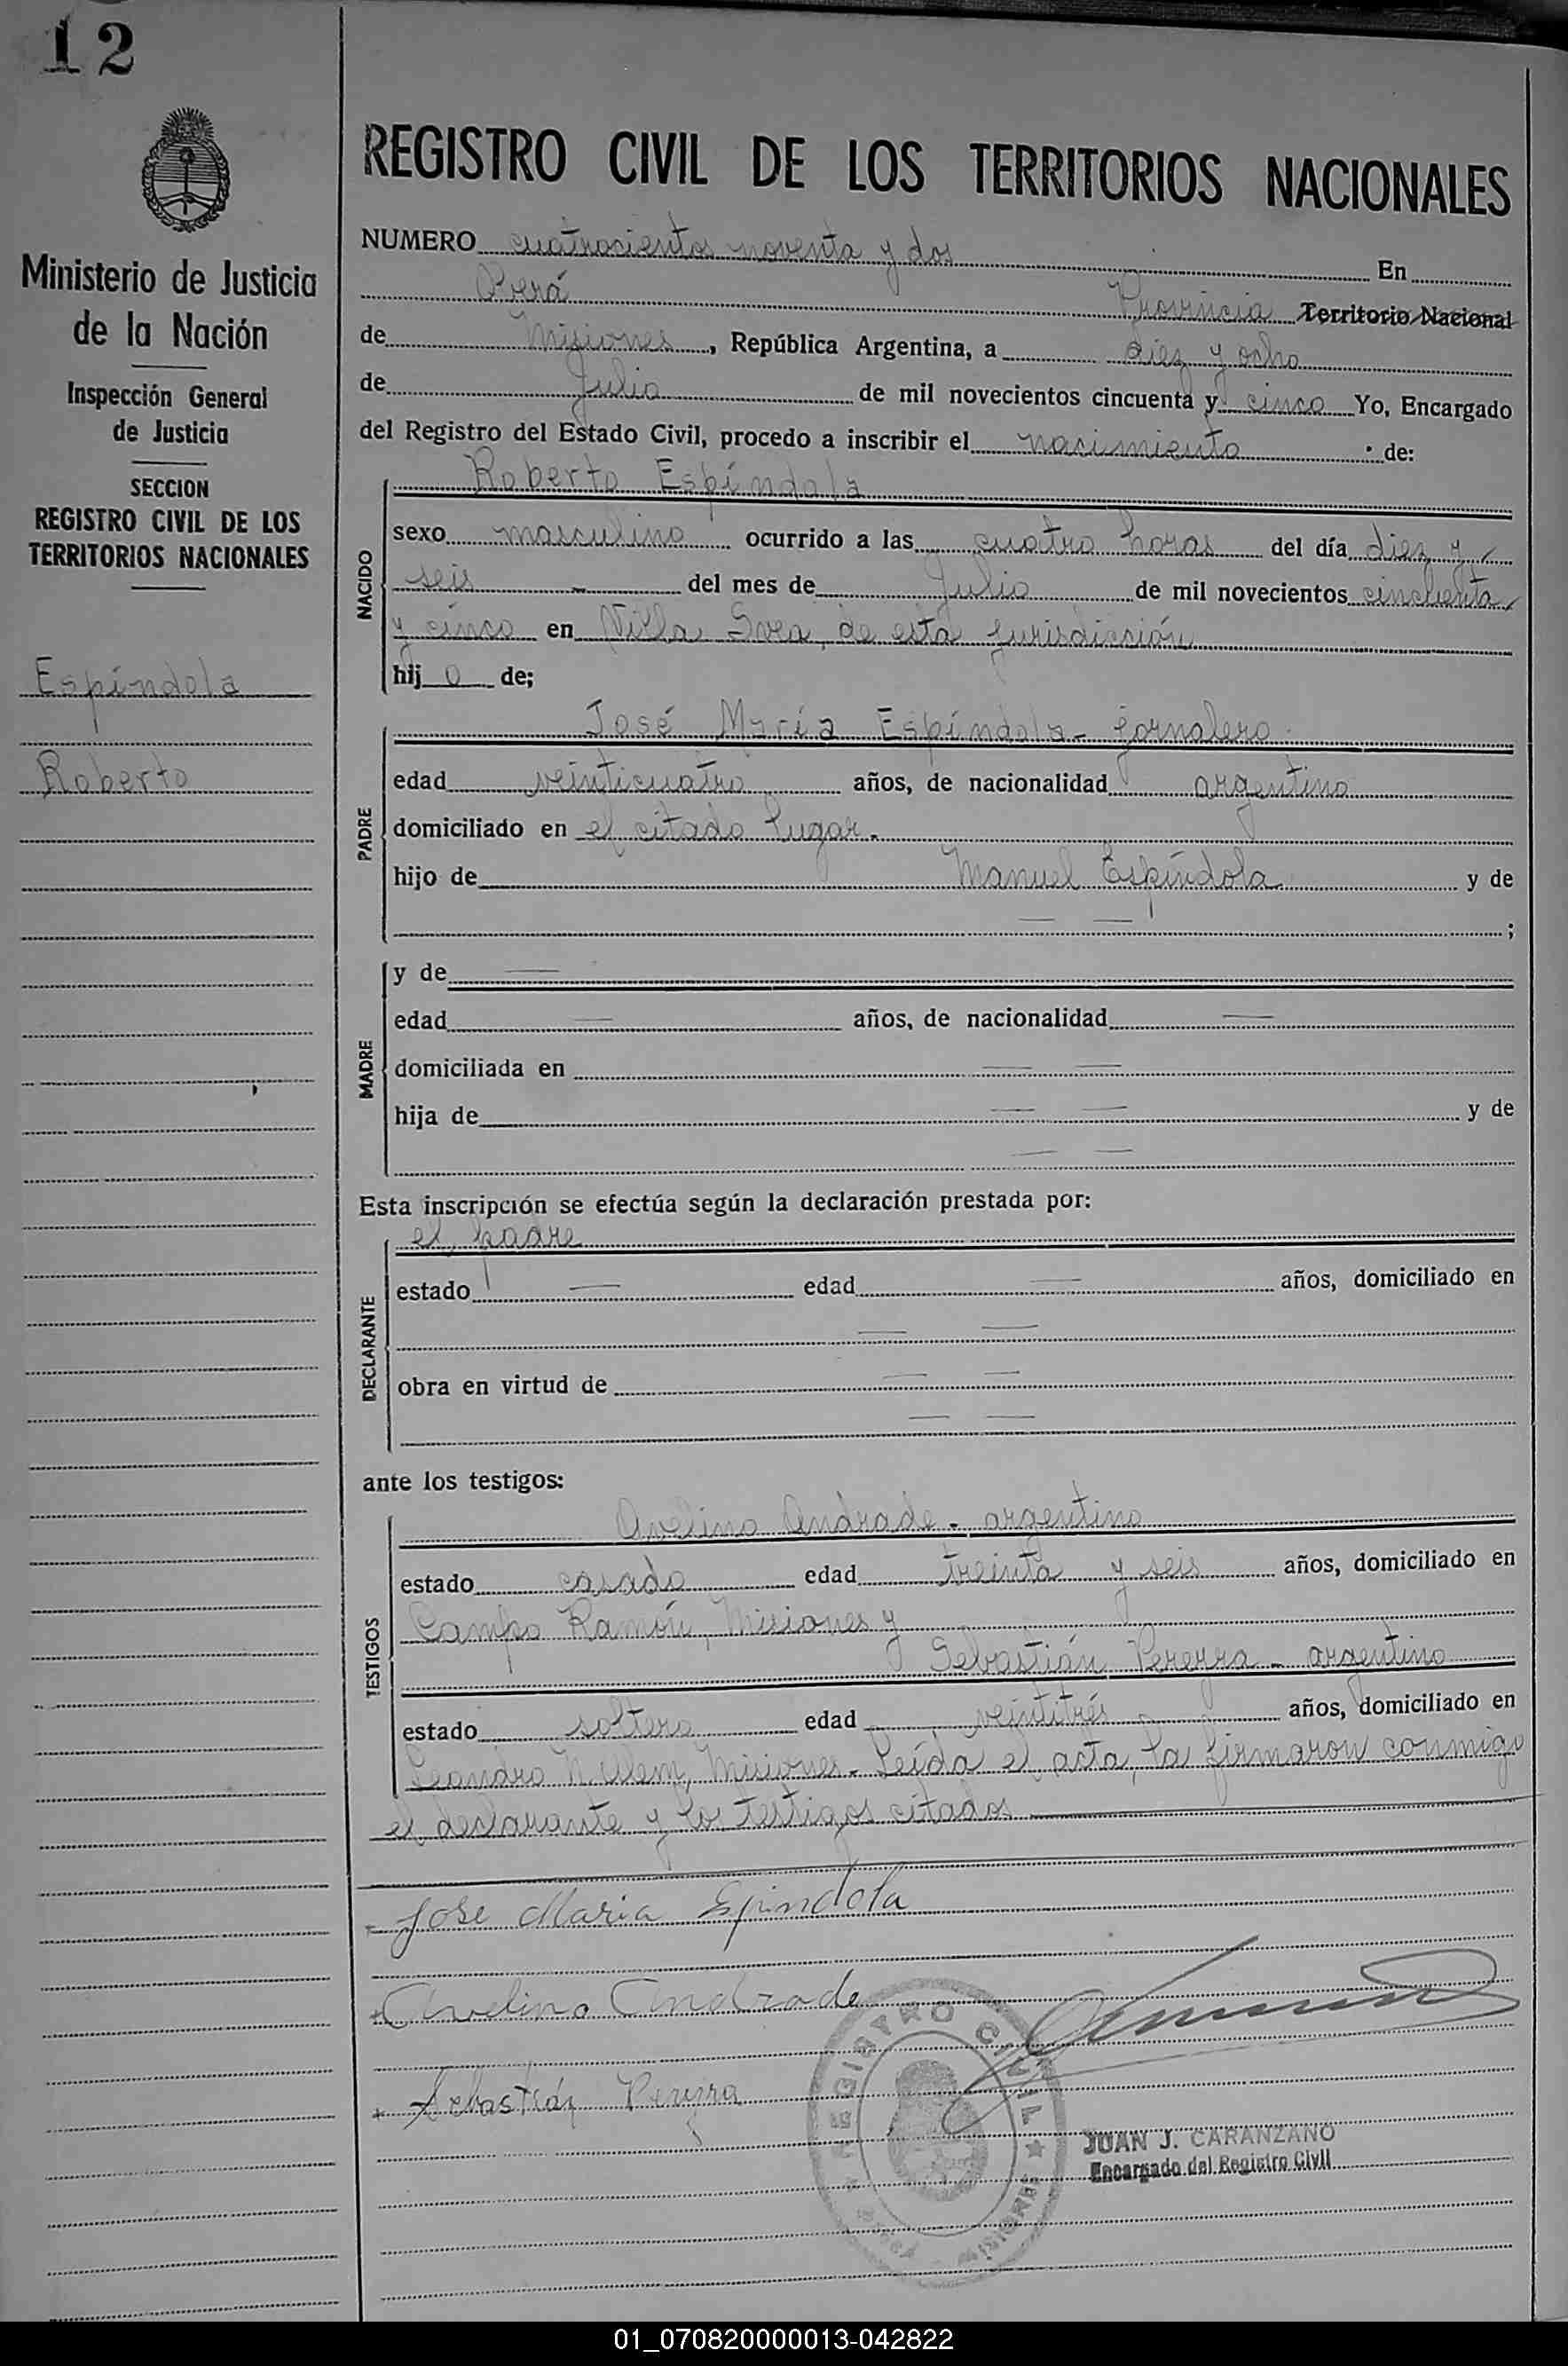 12
Ministerio de Justicia
de la Nación
Inspección General
de Justicia
SECCION
REGISTRO CIVIL DE LOS
TERRITORIOS NACIONALES
Espíndola
Roberto
REGISTRO CIVIL DE LOS TERRITORIOS NACIONALES
NUMERO cuatrocientos noventa y dos En
Oberá Provincia Territorio Nacional
de Misiones, República Argentina, a diez y ocho
de Julio de mil novecientos cincuenta y cinco Yo, Encargado
del Registro del Estado Civil, procedo a inscribir el nacimiento de:
NACIDO
Roberto Espíndola
sexo masculino ocurrido a las cuatro horas del día diez y
seis del mes de Julio de mil novecientos cincuenta
y cinco en Villa Svea, de esta jurisdicción
hijo de;
PADRE
José María Espíndola - jornalero
edad veinticuatro años, de nacionalidad argentino
domiciliado en el citado lugar.
hijo de Manuel Espíndola y de
— — ;
MADRE
y de —
edad — años, de nacionalidad —
domiciliada en — —
hija de — — y de
— —
Esta inscripción se efectúa según la declaración prestada por:
DECLARANTE
el padre
estado — edad — años, domiciliado en
— —
obra en virtud de — —
— —
ante los testigos:
TESTIGOS
Avelino Andrade - argentino
estado casado edad treinta y seis años, domiciliado en
Campo Ramón, Misiones y
Sebastián Pereyra - argentino
estado soltero edad veintitrés años, domiciliado en
Leandro N. Alem, Misiones. Leída el acta, la firmaron conmigo
el declarante y los testigos citados
Jose Maria Espindola
Avelino Andrade
Sebastián Pereyra
REGISTRO CIVIL
JUAN J. CARANZANO
Encargado del Registro Civil
01_070820000013-042822